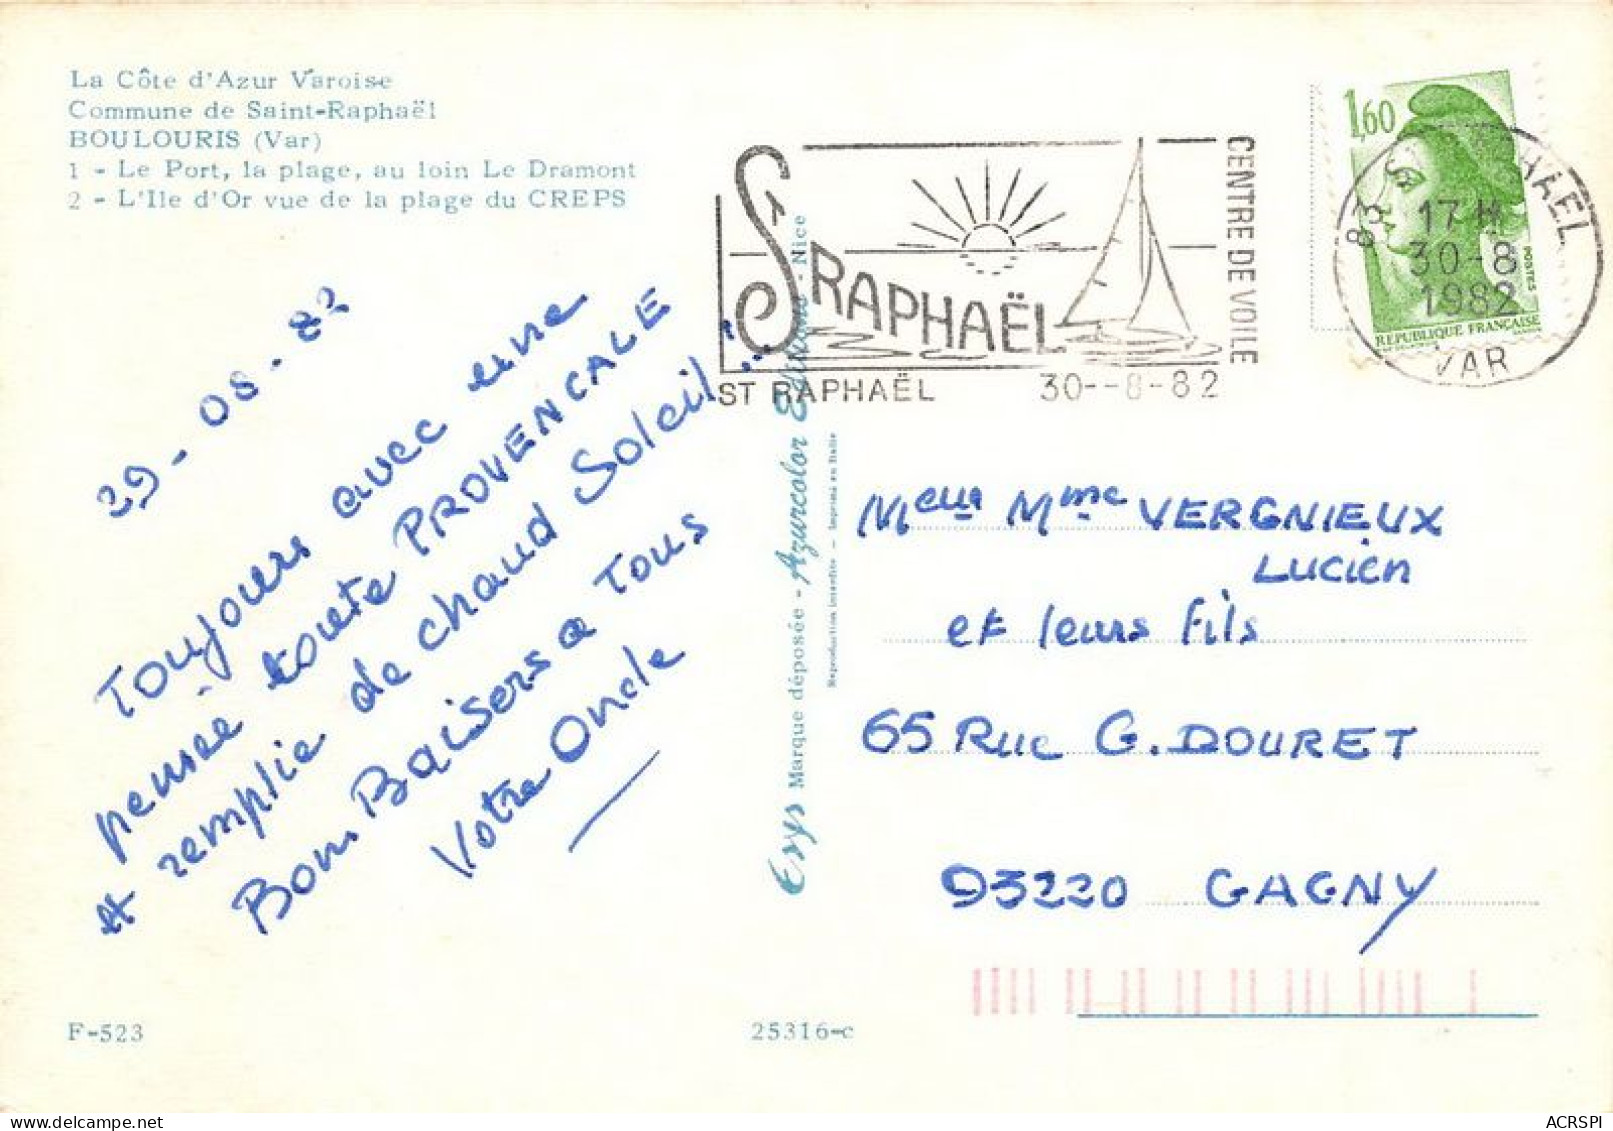 La Côte d'Azur Varoise
Commune de Saint-Raphaël
BOULOURIS (Var)
1 - Le Port, la plage, au loin Le Dramont
2 - L'Ile d'Or vue de la plage du CREPS
29-08-82
Toujours avec une
pensée toute PROVENCALE
et remplie de chaud Soleil...
Bons Baisers a Tous
Votre Oncle
F-523
Erys Marque déposée - Azurcolor Editions - Nice
Reproduction interdite - Imprimé en Italie
25316-c
ST RAPHAËL
CENTRE DE VOILE
ST RAPHAËL 30--8-82
1,60
POSTES
REPUBLIQUE FRANÇAISE
83 ST RAPHAEL
17 H
30-8
1982
VAR
Meur Mme VERGNIEUX
Lucien
et leurs fils
65 Rue G. DOURET
93220 GAGNY
ACRSPI